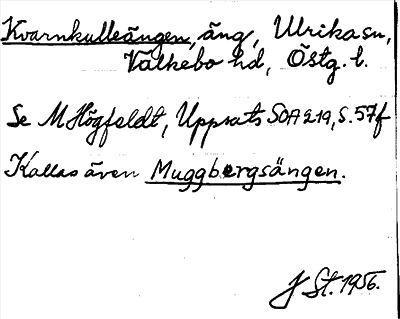 Kvarnkulleängen, äng, Ulrika sn,
Valkebo hd, Östg. l.
Se M Högfeldt, Uppsats SOA 219, S. 57f
Kallas även Muggbergsängen.
J St. 1956.